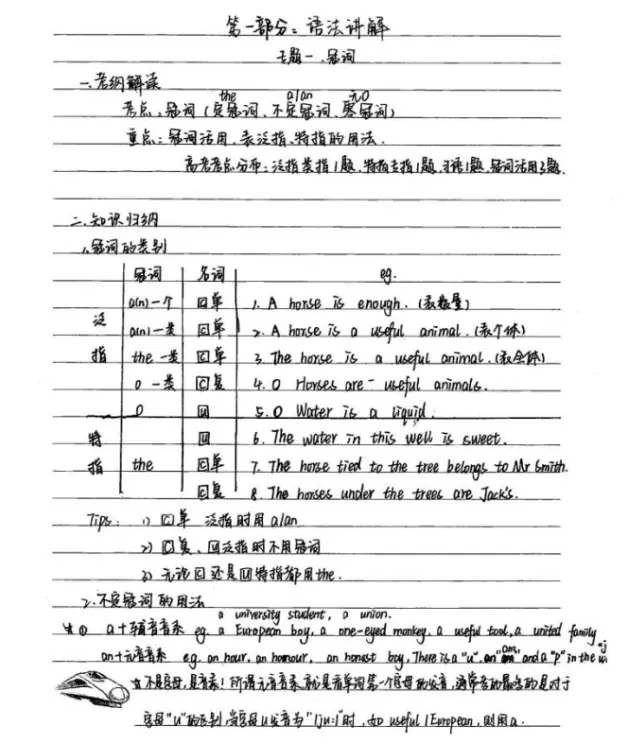 第一部分：语法讲解
主题一、冠词
一、考纲解读
the a/an 无0
考点：冠词（定冠词、不定冠词、零冠词）
重点：冠词活用、表泛指、特指的用法.
高考考点分布：泛指类指1题，特指专指1题，习语1题，冠词活用3题.
二、知识归纳
1、冠词的类别
冠词 名词 eg.
a(n)一个 C单 1. A horse is enough. (表数量)
泛 a(n)一类 C单 2. A horse is a useful animal. (表个体)
指 the 一类 C单 3. The horse is a useful animal. (表全体)
0 一类 C复 4. 0 Horses are useful animals.
0 U 5. 0 Water is a liquid.
特 U 6. The water in this well is sweet.
指 the C单 7. The horse tied to the tree belongs to Mr Smith.
C复 8. The horses under the trees are Jack's.
Tips: 1) C单 泛指时用a/an
2) C复、U泛指时不用冠词
3) 无论C还是U特指都用the.
2、不定冠词的用法
a university student, a union.
① a+辅音音素 eg. a European boy, a one-eyed monkey, a useful tool, a united family
an+元音音素 eg. an hour, an honour, an honest boy, There is a "u", an "m" and a "p" in the
不是字母，是音素！所谓元音音素就是看单词第一个字母的发音，通常考的最多的是对于
字母"u"的区别，当字母u发音为"[ju:]"时，如 useful / European，则用a.